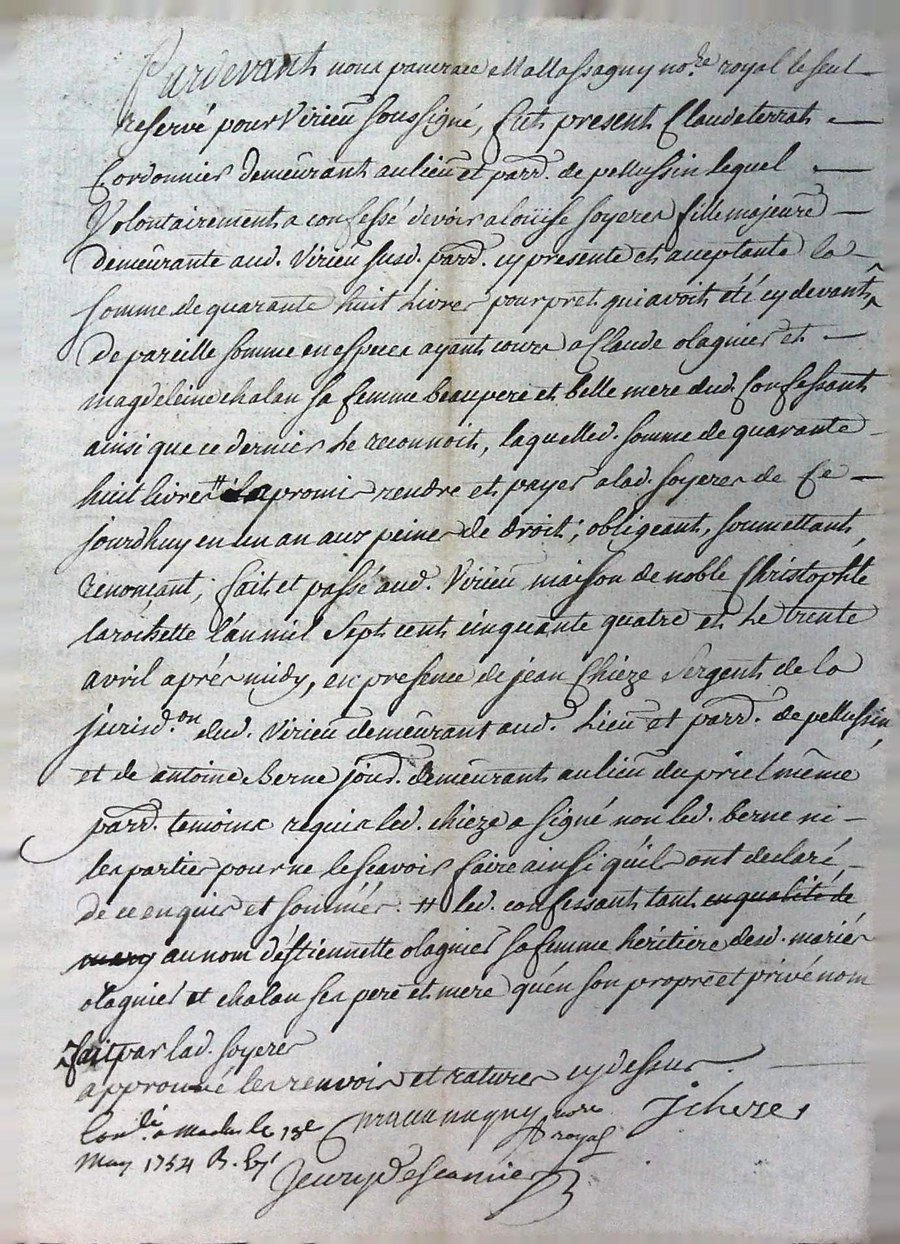 Pardevant nous pancrace Mallassagny no.re royal le seul
reservé pour Virieu soussigné, fut present Claude terrat
Cordonnier demeurant au lieu et parr. de pellussin lequel
Volontairement a confessé devoir a loüise soyeres fille majeure
demeurante aud. Virieu susd. parr. cy presente et acceptante la
somme de quarante huit livres pour pret qui avoit eté cy devant ^
de pareille somme en especes ayant cours a Claude olagnier et
magdeleine chalan sa femme beaupere et belle mere dud. Confessant
ainsi que ce dernier le reconnoit, laquelle d. somme de quarante
huit livres # promis rendre et payer a lad. soyeres de Ce
jourdhuy en un an aux peines de droit; obligeant, soumettant,
renonçant; fait et passé aud. Virieu maison de noble Christophle
larochette l'an mil sept cent cinquante quatre et le trente
avril aprés midy, en presence de jean Chieze sergent de la
jurisd.on dud. Virieu demeurant aud. lieu et parr. de pellussin,
et de antoine Berne jour. demeurant au lieu du priel même
parr. temoins requis led. chieze a signé non led. berne ni
les parties pour ne le scavoir faire ainsi qu'ils ont declaré,
de ce enquis et sommés. # led. confessant tant en qualité de
mary au nom d'éstiennette olagnier sa femme héritiere desd. mariés
olagnier et chalan ses pere et mere qu'en son propre et privé nom
^ fait par lad. soyeres
approuvé les renvois et ratures cy dessus
Con.lé a le 13e
May 1754 R.
no.re royal
jchieze